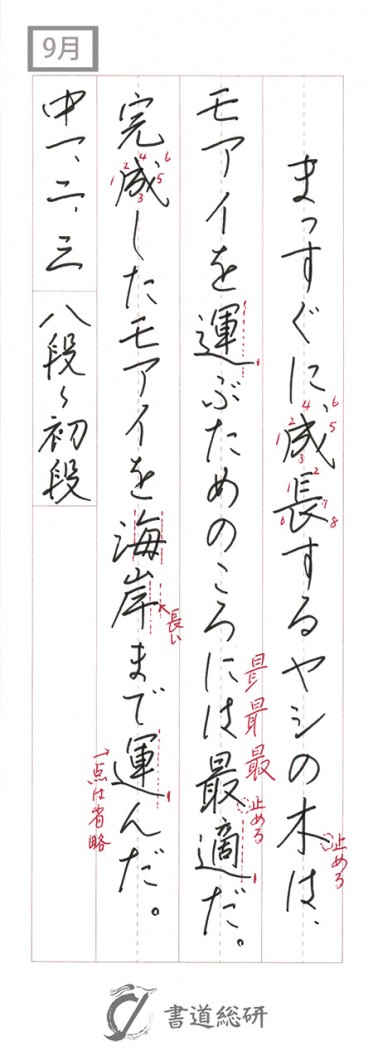 9月
まっすぐに成長するヤシの木は、
モアイを運ぶためのころには最適だ。
完成したモアイを海岸まで運んだ。
中一、二、三
八段〜初段
1 2 3 4 5 6
1 2 6 7 8
止める
最
止める
1 2 3 4 5 6
長い
一点は省略
書道総研